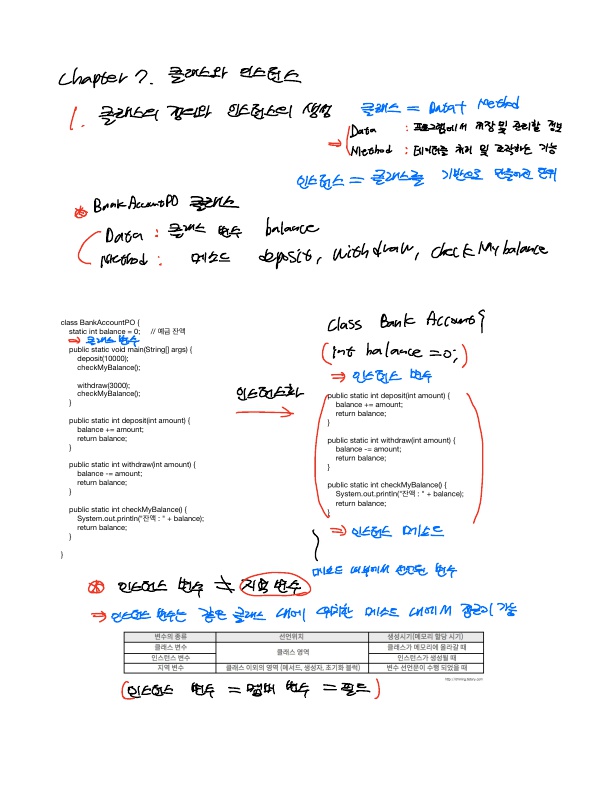 Chapter 7. 클래스와 인스턴스
1. 클래스의 정의와 인스턴스의 생성
클래스 = Data + Method
Data : 프로그램에서 저장 및 관리할 정보
⇒ Method : 데이터를 처리 및 조작하는 기능
인스턴스 = 클래스를 기반으로 만들어진 단위
* BankAccountPO 클래스
Data : 클래스 변수 balance
Method : 메소드 deposit, withdraw, checkMybalance
class BankAccountPO {
static int balance = 0; // 예금 잔액
⇒ 클래스 변수
public static void main(String[] args) {
deposit(10000);
checkMyBalance();
withdraw(3000);
checkMyBalance();
}
public static int deposit(int amount) {
balance += amount;
return balance;
}
public static int withdraw(int amount) {
balance -= amount;
return balance;
}
public static int checkMyBalance() {
System.out.println("잔액 : " + balance);
return balance;
}
}
인스턴스화
class Bank Account{
(int balance = 0;)
⇒ 인스턴스 변수
public static int deposit(int amount) {
balance += amount;
return balance;
}
public static int withdraw(int amount) {
balance -= amount;
return balance;
}
public static int checkMyBalance() {
System.out.println("잔액 : " + balance);
return balance;
}
⇒ 인스턴스 메소드
}
메소드 내부에서 선언된 변수
* 인스턴스 변수 ≠ 지역 변수
⇒ 인스턴스 변수는 같은 클래스 내에 위치한 메소드 내에서 접근이 가능
변수의 종류 선언위치 생성시기(메모리 할당 시기)
클래스 변수 클래스 영역 클래스가 메모리에 올라갈 때
인스턴스 변수 인스턴스가 생성될 때
지역 변수 클래스 이외의 영역 (메서드, 생성자, 초기화 블럭) 변수 선언문이 수행 되었을 때
(인스턴스 변수 = 멤버 변수 = 필드)